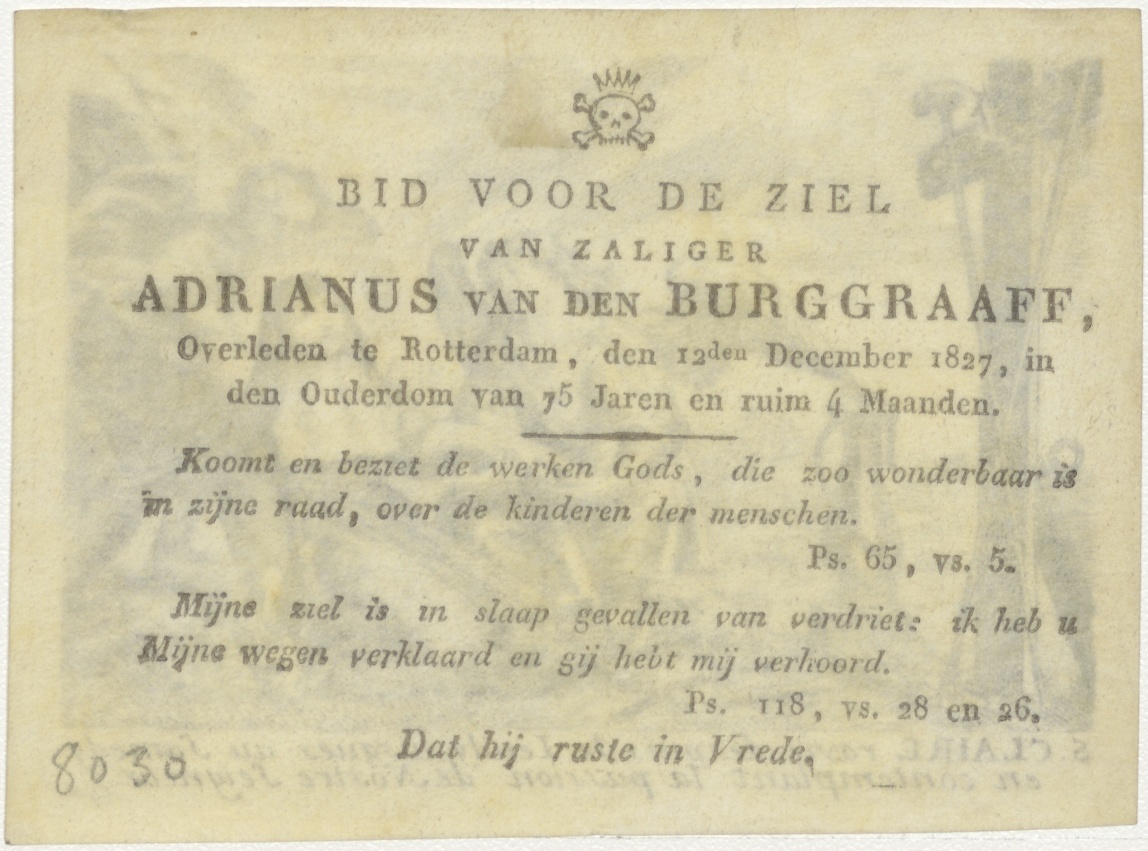 BID VOOR DE ZIEL
VAN ZALIGER
ADRIANUS VAN DEN BURGGRAAFF,
Overleden te Rotterdam, den 12den December 1827, in
den Ouderdom van 75 Jaren en ruim 4 Maanden.
Koomt en beziet de werken Gods, die zoo wonderbaar is
in zijne raad, over de kinderen der menschen.
Ps. 65, vs. 5.
Mijne ziel is in slaap gevallen van verdriet: ik heb u
Mijne wegen verklaard en gij hebt mij verhoord.
Ps. 118, vs. 28 en 26.
Dat hij ruste in Vrede.
8030
S. CLAIRE
en contemplant la passion de Nostre